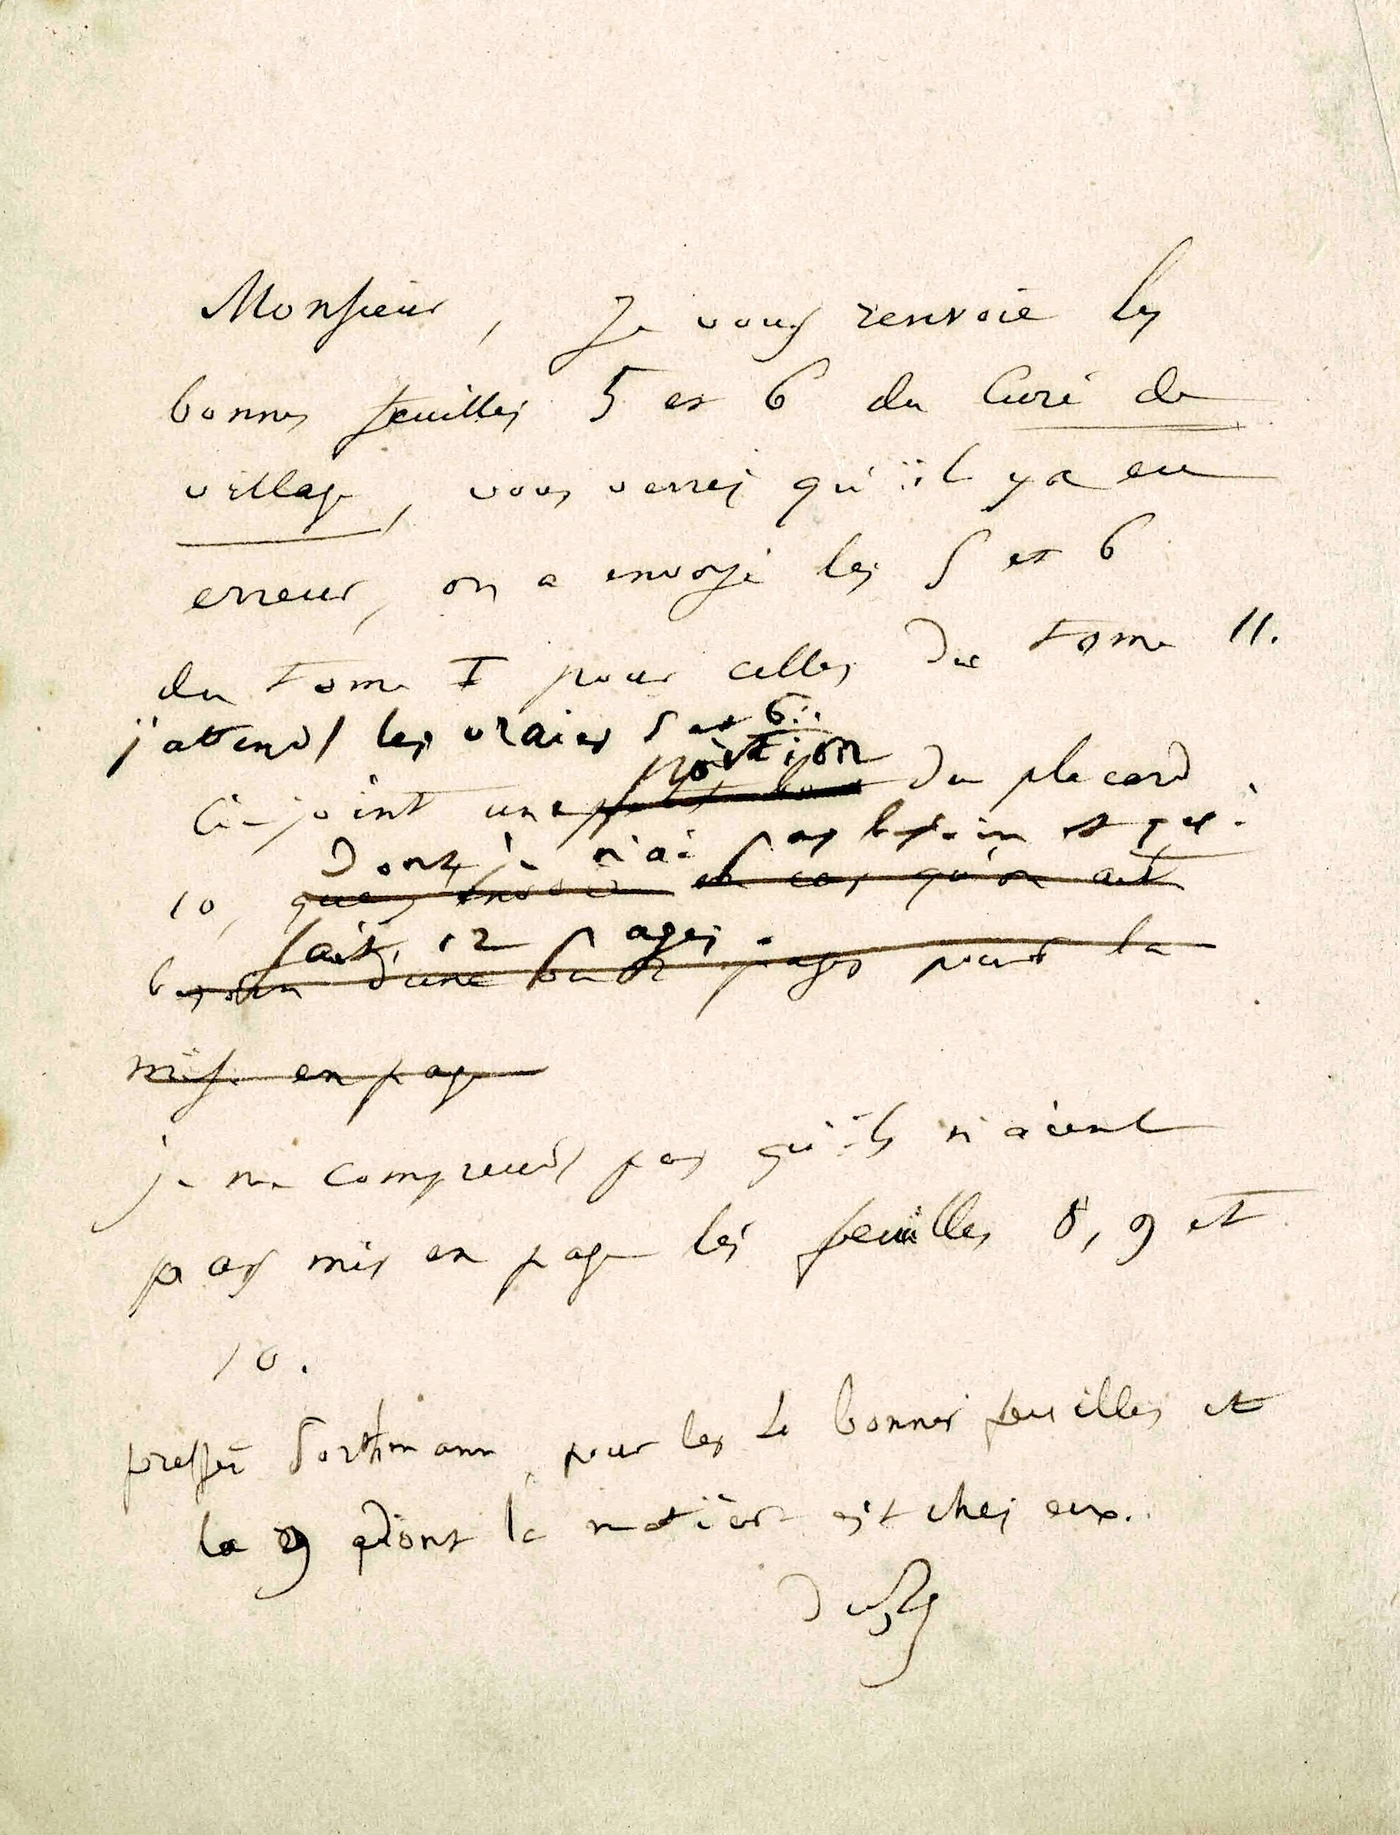 Monsieur, Je vous renvoie les
bonnes feuilles 5 et 6 du Curé de
village, vous verrez qu'il y a eu
erreur, on a envoyé les 5 et 6
du tome I pour celles du tome II.
j'attends les vraies 5 et 6.
portion
Ci-joint une du placard
dont je n'ai pas besoin et qui
10, que j'envoie en cas qu'on ait
fait, 12 pages.
besoin d'une pages pour la
mise en page
je ne comprends pas qu'ils n'aient
pas mis en page les feuilles 8, 9 et
10.
pressez pour les bonnes feuilles et
la 9 dont la matière est chez eux.